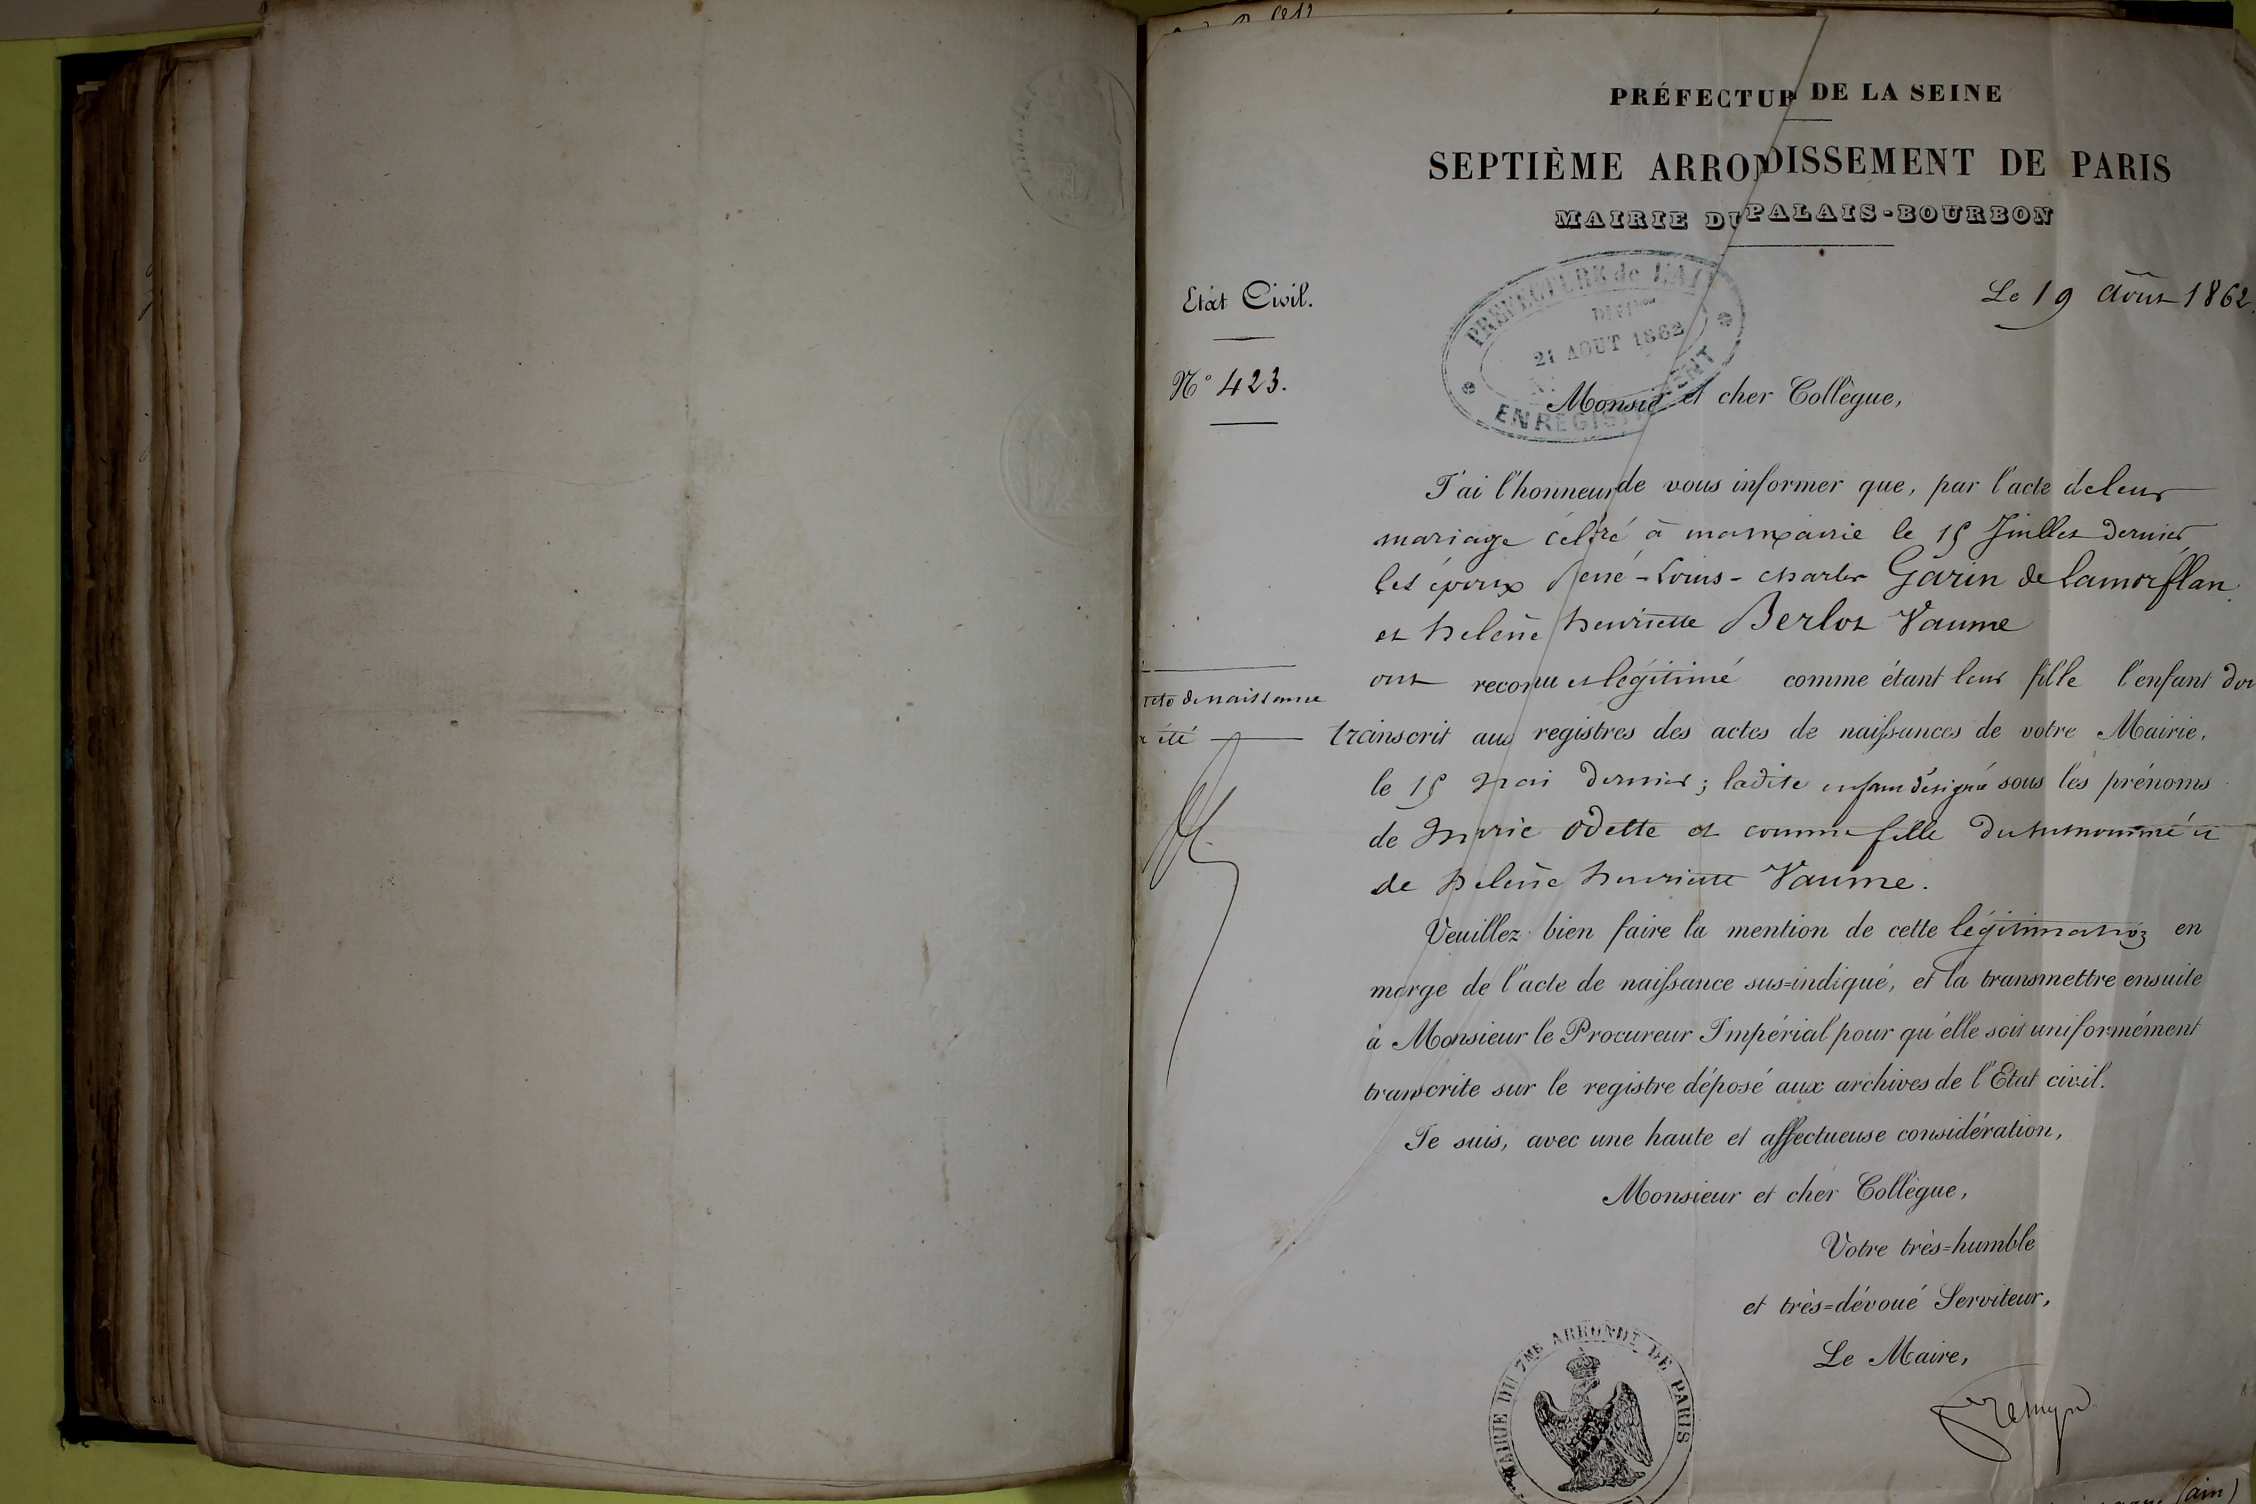 PRÉFECTUR DE LA SEINE
SEPTIÈME ARRONDISSEMENT DE PARIS
MAIRIE DU PALAIS-BOURBON
PREFECTURE de L'AIN
DIVISION
21 AOUT 1862
ENREGISTREMENT
Etat Civil.
Le 19 Août 1862.
N° 423.
Monsieur et cher Collègue,
J'ai l'honneur de vous informer que, par l'acte de leur
mariage célébré à ma mairie le 15 Juillet dernier
les époux René-Louis-Charles Garin de Lamorflan
et helène henriette Berlot Vaume
ont reconnu et légitimé comme étant leur fille l'enfant
transcrit aux registres des actes de naissances de votre Mairie,
le 15 Mai dernier; ladite enfant désignée sous les prénoms
de Marie Odette et comme fille du susnommé et
de helène henriette Vaume.
de naissance
été
Veuillez bien faire la mention de cette légitimation en
marge de l'acte de naissance sus=indiqué, et la transmettre ensuite
à Monsieur le Procureur Impérial pour qu'elle soit uniformément
transcrite sur le registre déposé aux archives de l'Etat civil.
Je suis, avec une haute et affectueuse considération,
Monsieur et cher Collègue,
Votre très=humble
et très=dévoué Serviteur,
Le Maire,
MAIRIE DU 7ME ARRONDT DE PARIS
(ain)